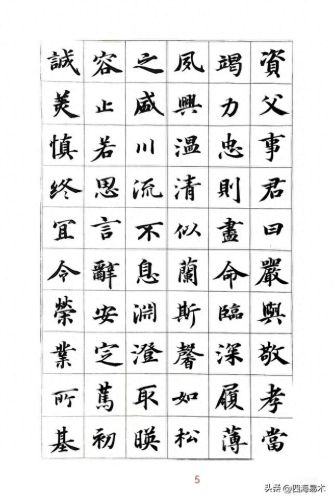 資父事君曰嚴與敬孝當
竭力忠則盡命臨深履薄
夙興温清似蘭斯馨如松
之盛川流不息淵澄取暎
容止若思言辭安定篤初
誠美慎終宜令榮業所基
5
头条 @四海嘉木